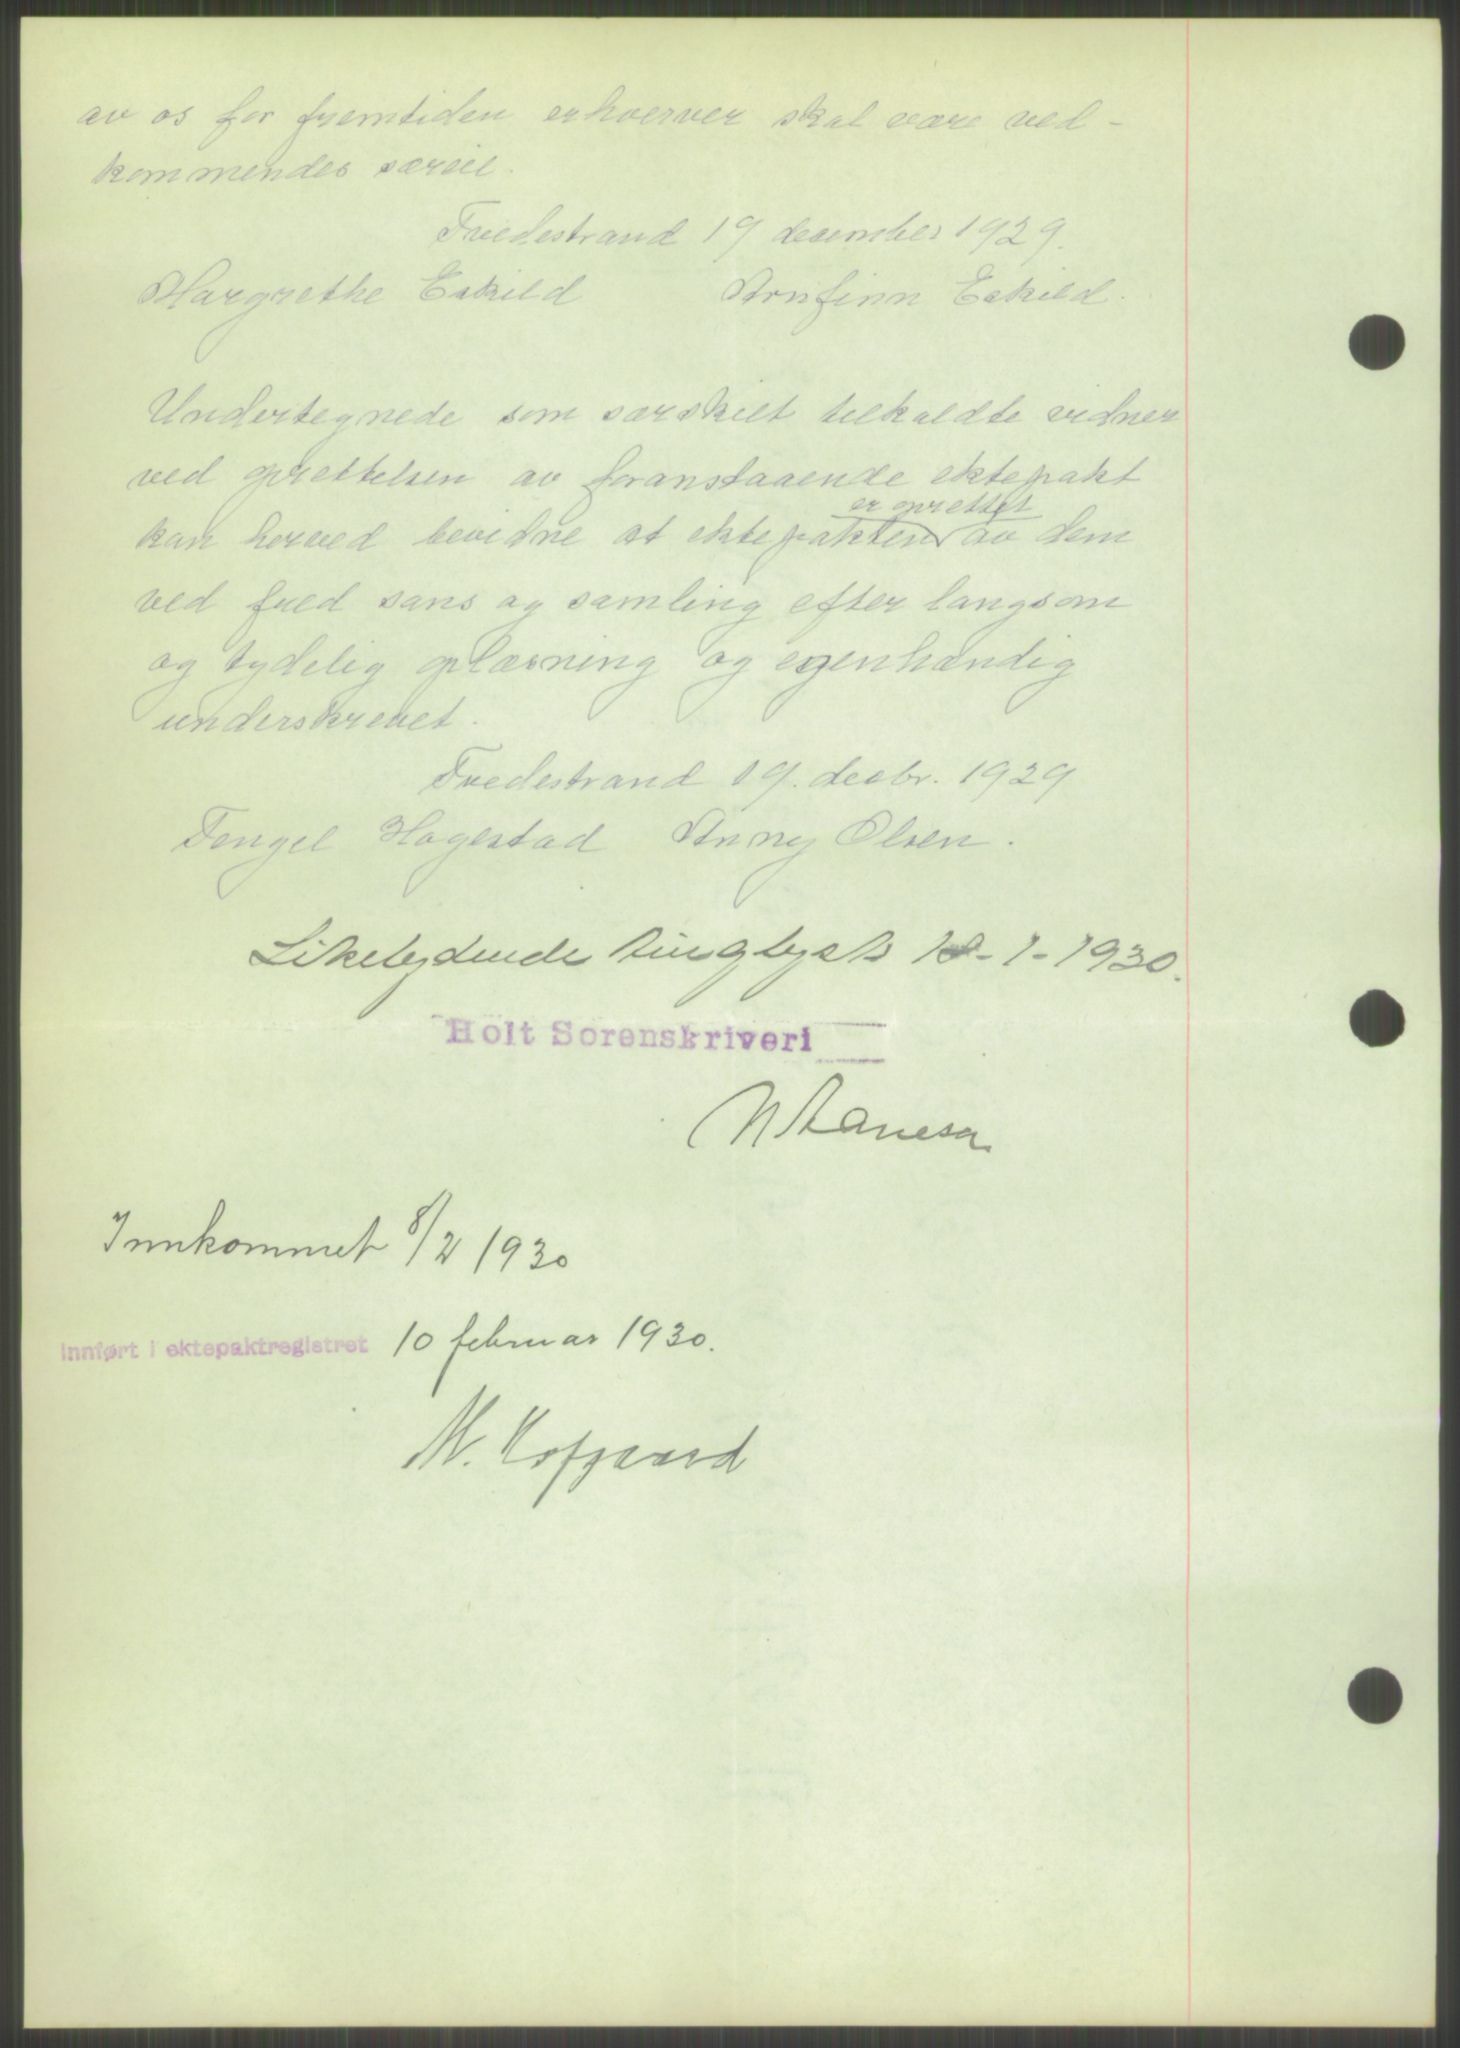 av os for fremtiden erhverver skal være ved-
kommendes særeie.
Tvedestrand 19 desember 1929.
Margrethe Eskild Arnfinn Eskild.
Undertegnede som særskilt tilkaldte vidner
ved oprettelsen av foranstaaende ektepakt
er oprettet
kan herved bevidne at ektepakten av dem
ved fuld sans og samling efter langsom
og tydelig oplæsning og egenhændig
underskrevet.
Tvedestrand 19. decbr. 1929
Tengel Hagestad Anny Olsen.
Likelydende tinglyst 18-1-1930.
Holt Sorenskriveri
Innkommet 8/2 1930
Innført i ektepaktregistret 10 februar 1930.
M. Kofgaard